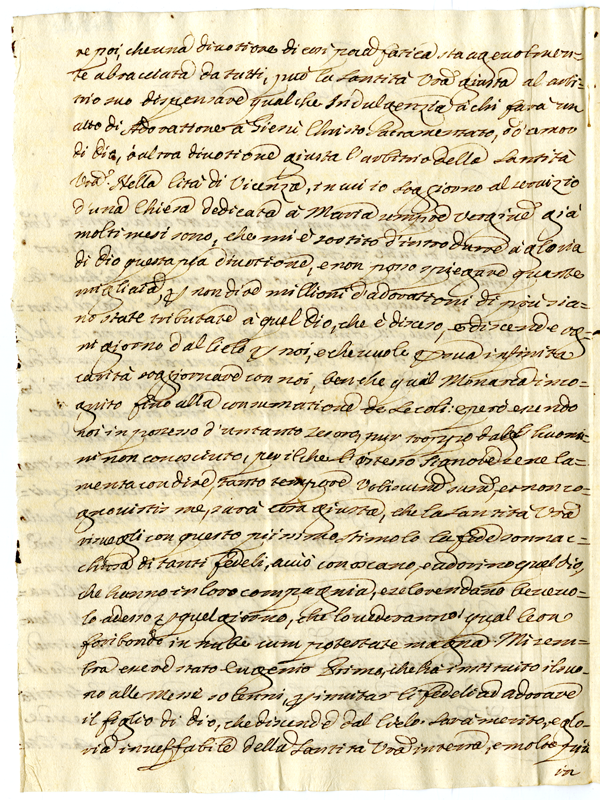 re poi, che una divotione di così poca fatica sia agevolmen-
te abracciata da tutti, può la Santità Vrã giusta al arbi-
trio suo dispensare qualche Indulgenza à chi farà un
atto di Adorattione à Giesù Christo Sacramentato, ò d'amor
di Dio, ò altra divotione giusta l'arbitrio della Santità
Vrã. Nella Città di Vicenza, in cui io soggiorno al servizio
d'una Chiesa dedicata à Maria sempre Vergine, già
molti mesi sono, che mi è sortito d'introdurre à gloria
di Dio questa pia divotione, e non posso spiegare quante
migliara, per non dire millioni d'adorattioni di poi sia-
no state tributate à quel Dio, che è disceso, e discende og-
ni giorno dal Cielo per noi, e che vuole per sua infinita
carità soggiornare con noi, ben che qual Monarca inco-
gnito fino alla consumatione de Secoli: e però essendo
noi in possesso d'un tanto Tesoro, pur troppo dalli huomi-
ni non conosciuto, per il che l'istesso Signore se ne la-
menta con dire, tanto tempore vobiscum sum, et non co-
gnovistis me, sarà cosa giusta, che la Santità Vrã
svegli con questo piissimo stimolo la fede sonnac-
chiosa di tanti fedeli, acciò conoscano, e adorino quel Dio,
che hanno in loro compagnia, e se lo rendano benevo-
lo adesso per quel giorno, che lo vederanno qual Leon
foribondo in nube cum potestate magna. Mi sem-
bra esser stato Eugenio Primo, che ha instituito il suo-
no alle Messe solenni, per invitar li fedeli ad adorare
il figlio di Dio, che discende dal Cielo. Sarà merito, e glo-
ria inneffabile della Santità Vrã in terra, e molto più
in